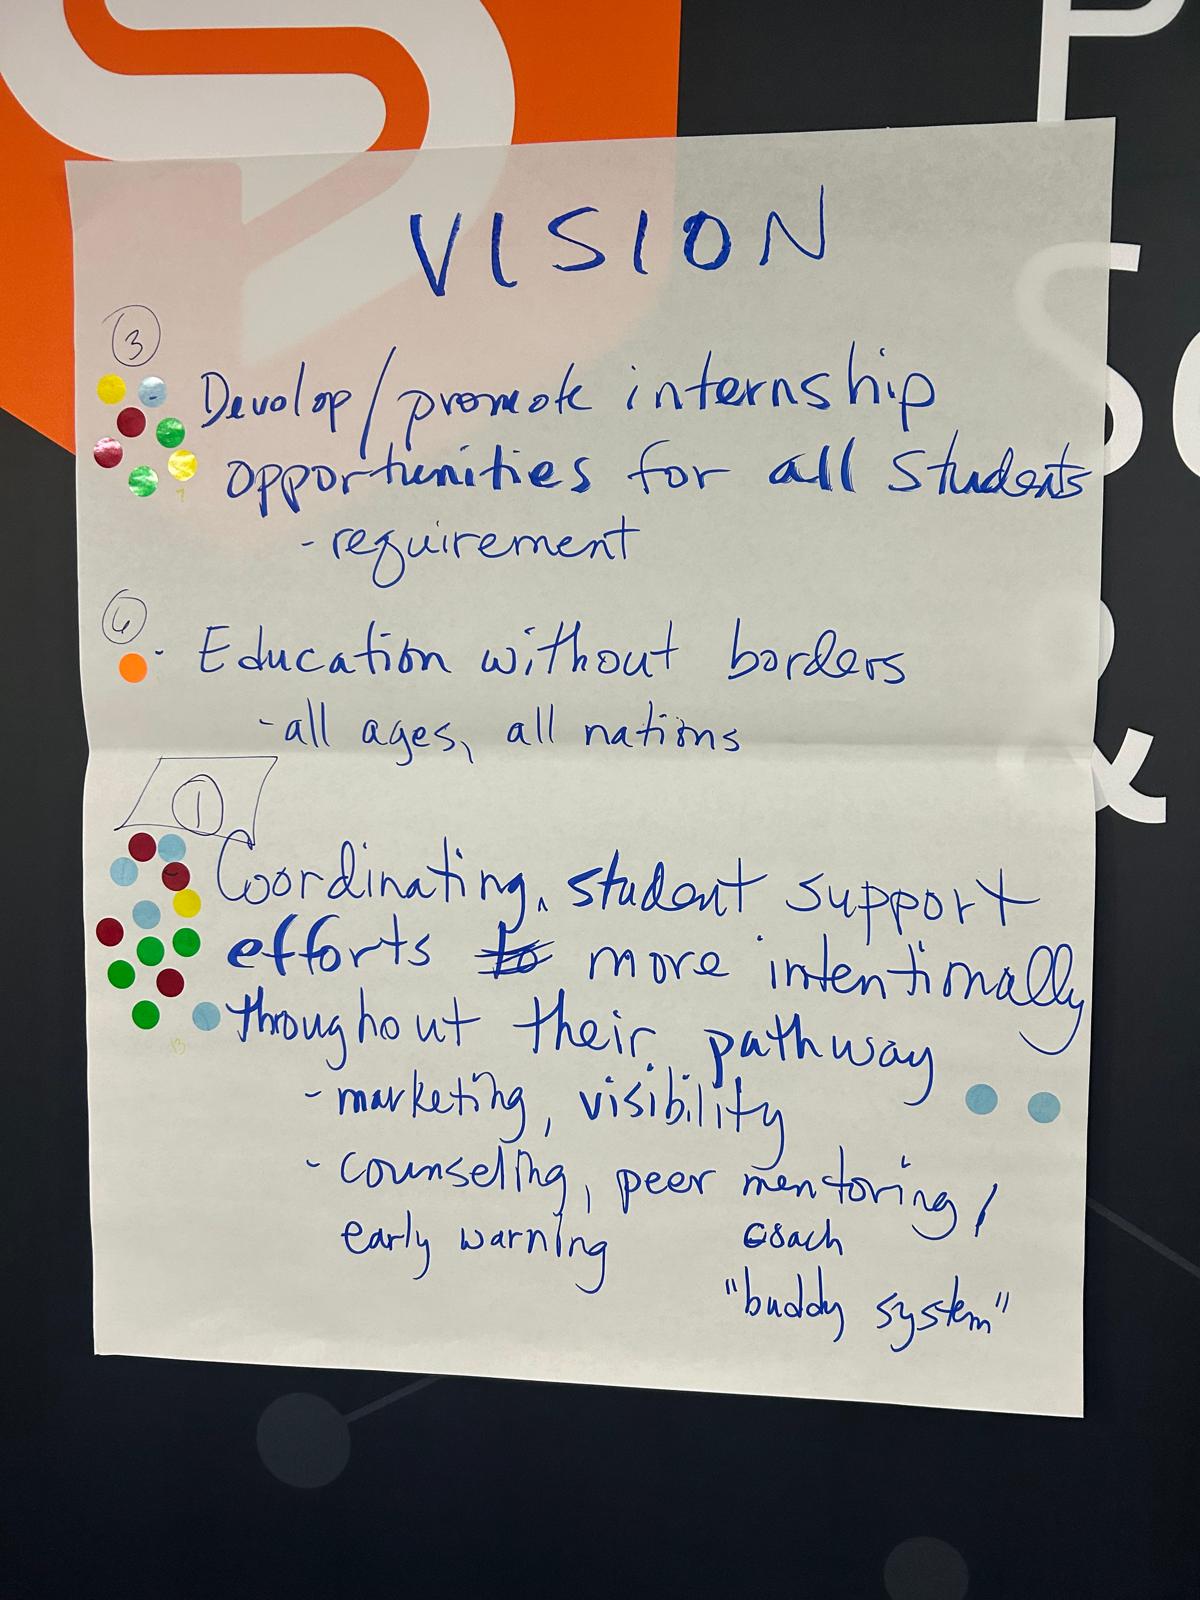 VISION
3
Develop/promote internship
opportunities for all students
7
- requirement
6
- Education without borders
- all ages, all nations
1
Coordinating, student support
efforts to more intentionally
throughout their pathway
13
- marketing, visibility
- counseling, peer mentoring/
early warning coach
"buddy system"
P
&